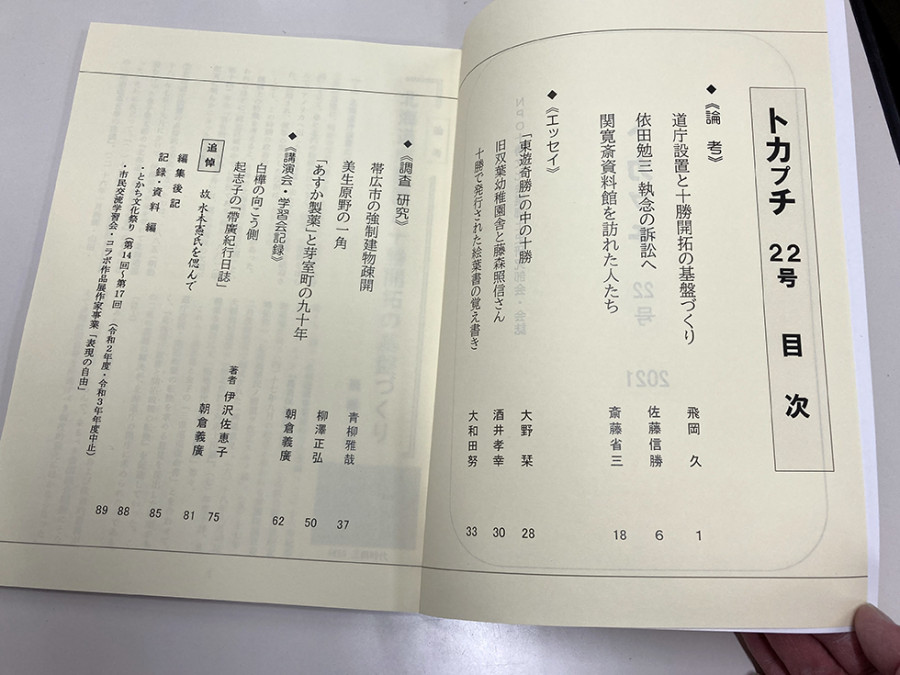 トカプチ 22号 目次
◆《論考》
道庁設置と十勝開拓の基盤づくり 飛岡 久 1
依田勉三 執念の訴訟へ 佐藤信勝 6
関寛斎資料館を訪れた人たち 斎藤省三 18
◆《エッセイ》
「東遊奇勝」の中の十勝 大野 栞 28
旧双葉幼稚園舎と藤森照信さん 酒井孝幸 30
十勝で発行された絵葉書の覚え書き 大和田努 33
◆《調査 研究》
帯広市の強制建物疎開 青柳雅哉 37
美生原野の一角 柳澤正弘 50
「あすか製薬」と芽室町の九十年 朝倉義廣 62
◆《講演会・学習会記録》
白樺の向こう側
起志子の「帯廣紀行日誌」 著者 伊沢佐恵子 75
追悼 故 水本憲氏を偲んで 朝倉義廣 81
編集後記 85
記録・資料 編
・とかち文化祭り(第14回~第17回 (令和2年度・令和3年年度中止) 88
・市民交流学習会・コラボ作品展作家事業「表現の自由」 89